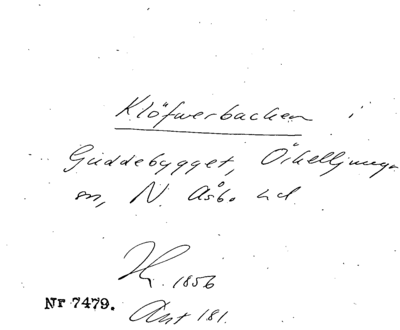 Klöfwerbacken i
Guddebygget, Örkelljunga
sn, N. Åsbo hd
Hs. 1856
Nr 7479.
Ant 181.